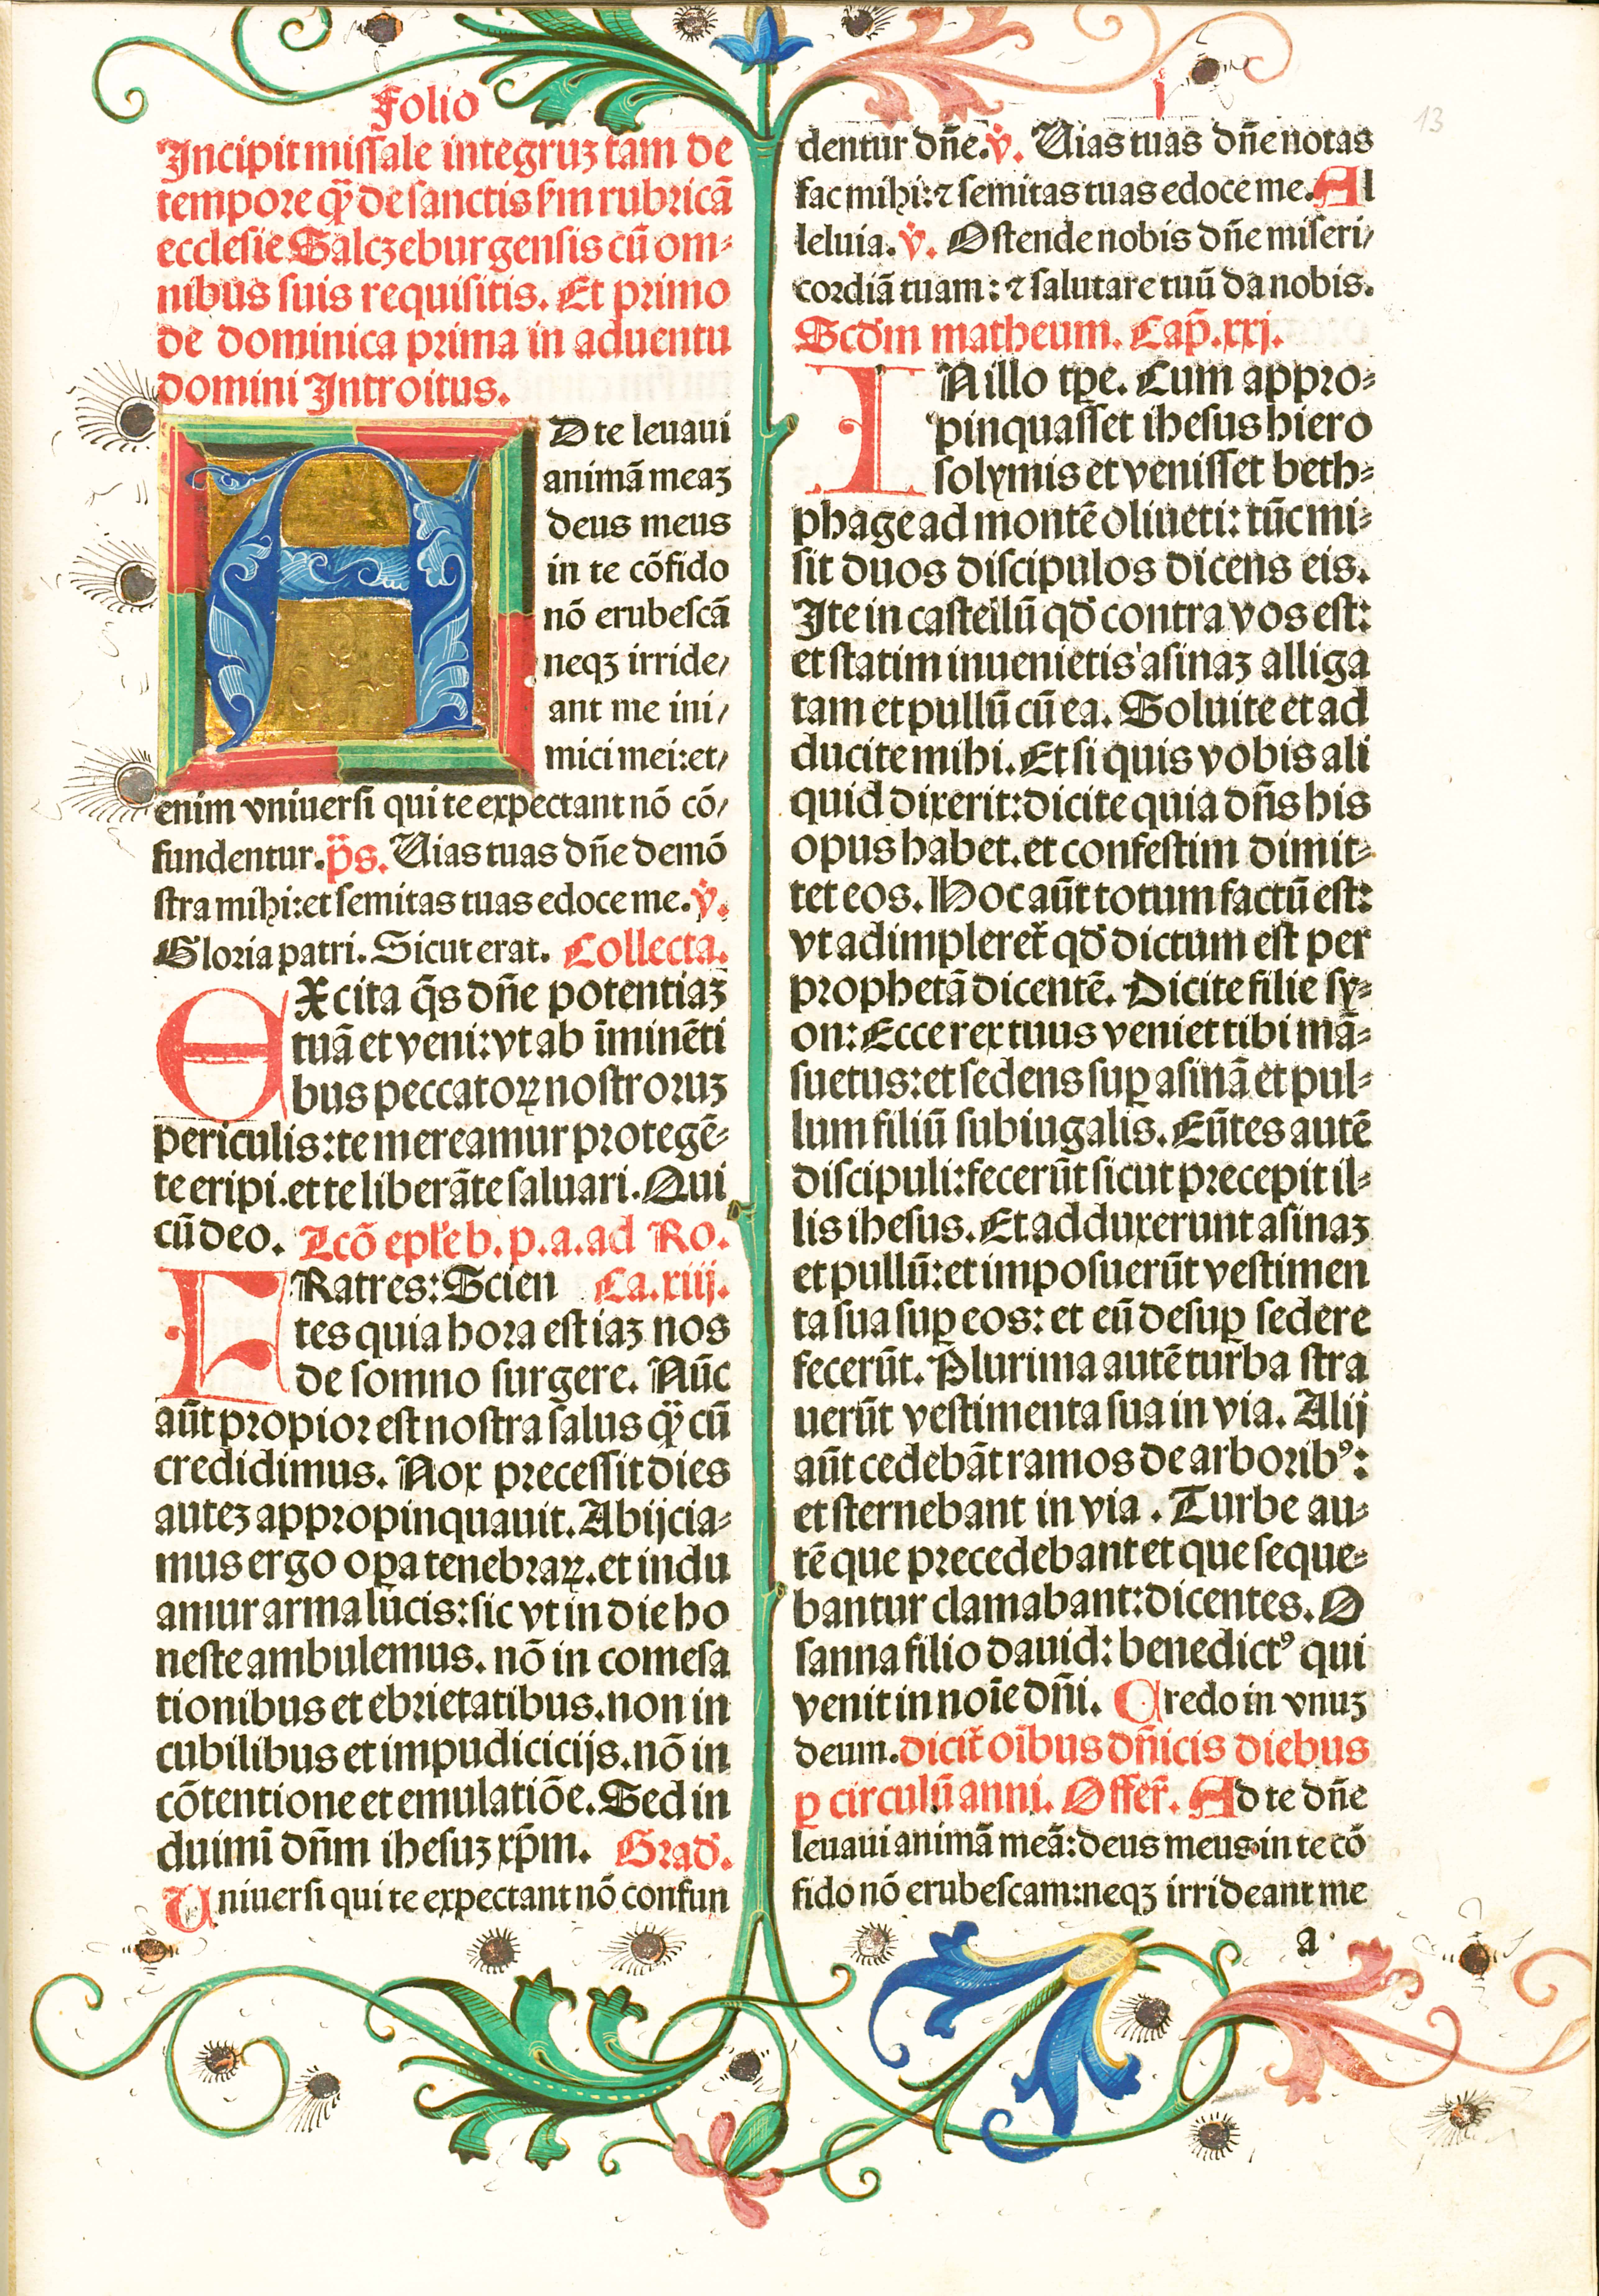 Folio
Incipit missale integruꝫ tam de
tempore qȝ̄ de sanctis sꝫm rubricā
ecclesie Salczeburgensis cū om⸗
nibus suis requisitis. Et primo
de dominica prima in aduentu
domini Introitus.
AD te leuaui
animā meaꝫ
deus meus
in te cōfido
nō erubescā
neqꝫ irride/
ant me ini/
mici mei: et/
enim vniuersi qui te expectant nō cō/
fundentur. p̄s. Uias tuas dn̄e demō
stra mihi: et semitas tuas edoce me. v̊.
Gloria patri. Sicut erat. Collecta.
EXcita q̄s dn̄e potentiaꝫ
tuā et veni: vt ab īminēti
bus peccatoꝝ nostroruꝫ
periculis: te mereamur protegē⸗
te eripi. et te liberāte saluari. Qui
cū deo. Lcō epl̄e b. p. a. ad Ro.
FRatres: Scien Ca. xiij.
tes quia hora est iaꝫ nos
de somno surgere. Nūc
aūt propior est nostra salus qȝ̄ cū
credidimus. Nox precessit dies
auteꝫ appropinquauit. Abijcia⸗
mus ergo oꝑa tenebraꝝ. et indu
amur arma lucis: sic vt in die ho
neste ambulemus. nō in comesa
tionibus et ebrietatibus. non in
cubilibus et impudicicijs. nō in
cōtentione et emulatiōe. Sed in
duimī dn̄m ihesuꝫ xp̄m. Grad̄.
Uniuersi qui te expectant nō confun
I
13
dentur dn̄e. v̊. Uias tuas dn̄e notas
fac mihi: ⁊ semitas tuas edoce me. Al
leluia. v̊. Ostende nobis dn̄e miseri/
cordiā tuam: ⁊ salutare tuū da nobis.
Scd̄m matheum. Cap̄. xxj.
IN illo tꝑe. Cum appro⸗
pinquasset ihesus hiero
solymis et venisset beth⸗
phage ad montē oliueti: tūc mi⸗
sit duos discipulos dicens eis.
Ite in castellū qd̄ contra vos est:
et statim inuenietis asinaꝫ alliga
tam et pullū cū ea. Soluite et ad
ducite mihi. Et si quis vobis ali
quid dixerit: dicite quia dn̄s his
opus habet. et confestim dimit⸗
tet eos. Hoc aūt totum factū est:
vt adimpleret̄ qd̄ dictum est per
prophetā dicentē. Dicite filie sy⸗
on: Ecce rex tuus veniet tibi mā⸗
suetus: et sedens suꝑ asinā et pul⸗
lum filiū subiugalis. Eūtes autē
discipuli: fecerūt sicut precepit il⸗
lis ihesus. Et adduxerunt asinaꝫ
et pullū: et imposuerūt vestimen
ta sua suꝑ eos: et eū desuꝑ sedere
fecerūt. Plurima autē turba stra
uerūt vestimenta sua in via. Alij
aūt cedebāt ramos de arboribꝰ:
et sternebant in via. Turbe au⸗
tē que precedebant et que seque⸗
bantur clamabant: dicentes. O
sanna filio dauid: benedictꝰ qui
venit in noīe dn̄i. Credo in vnuꝫ
deum. dicit̄ oībus dn̄icis diebus
ꝑ circulū anni. Offer̄. Ad te dn̄e
leuaui animā meā: deus meus in te cō
fido nō erubescam: neqꝫ irrideant me
a